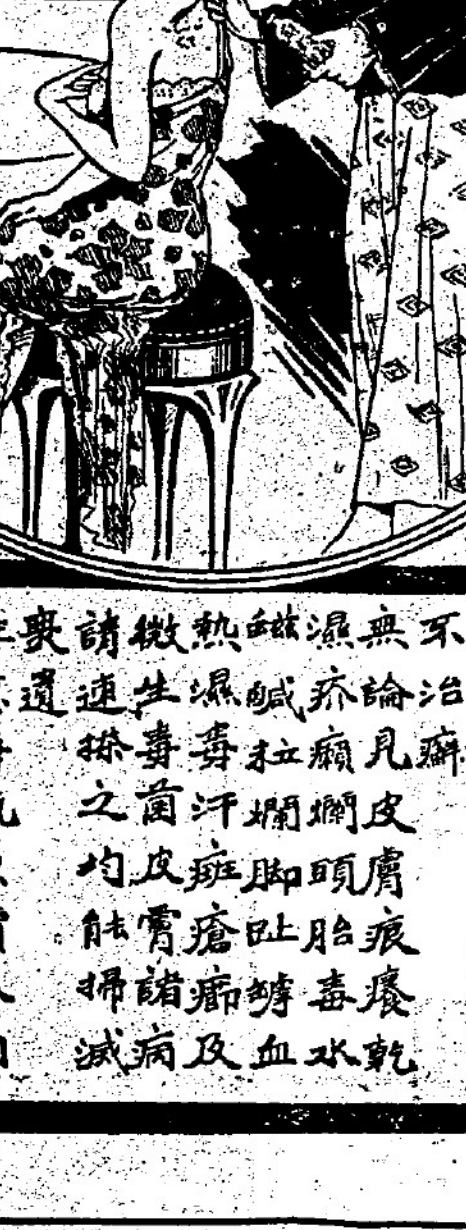 不治癬
無論凡皮膚痕癢乾
濕疥癩爛頭胎毒水
鹹拉爛脚趾罅血
熱濕毒汗斑瘡癤及
微生毒菌皮膚諸病
請速搽之均能掃滅
遺